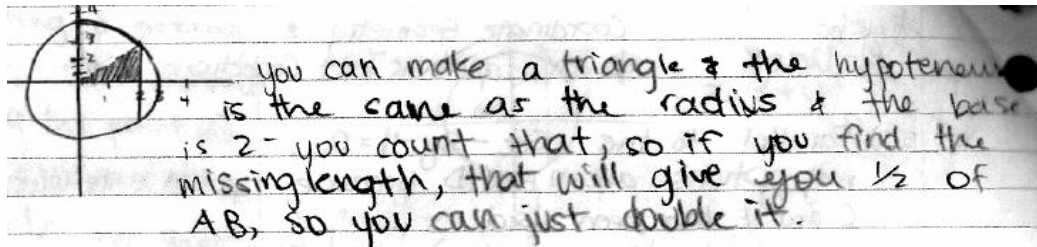 you can make a triangle & the hypoteneu
is the same as the radius & the base
is 2 - you count that, so if you find the
missing length, that will give you ½ of
AB, so you can just double it.